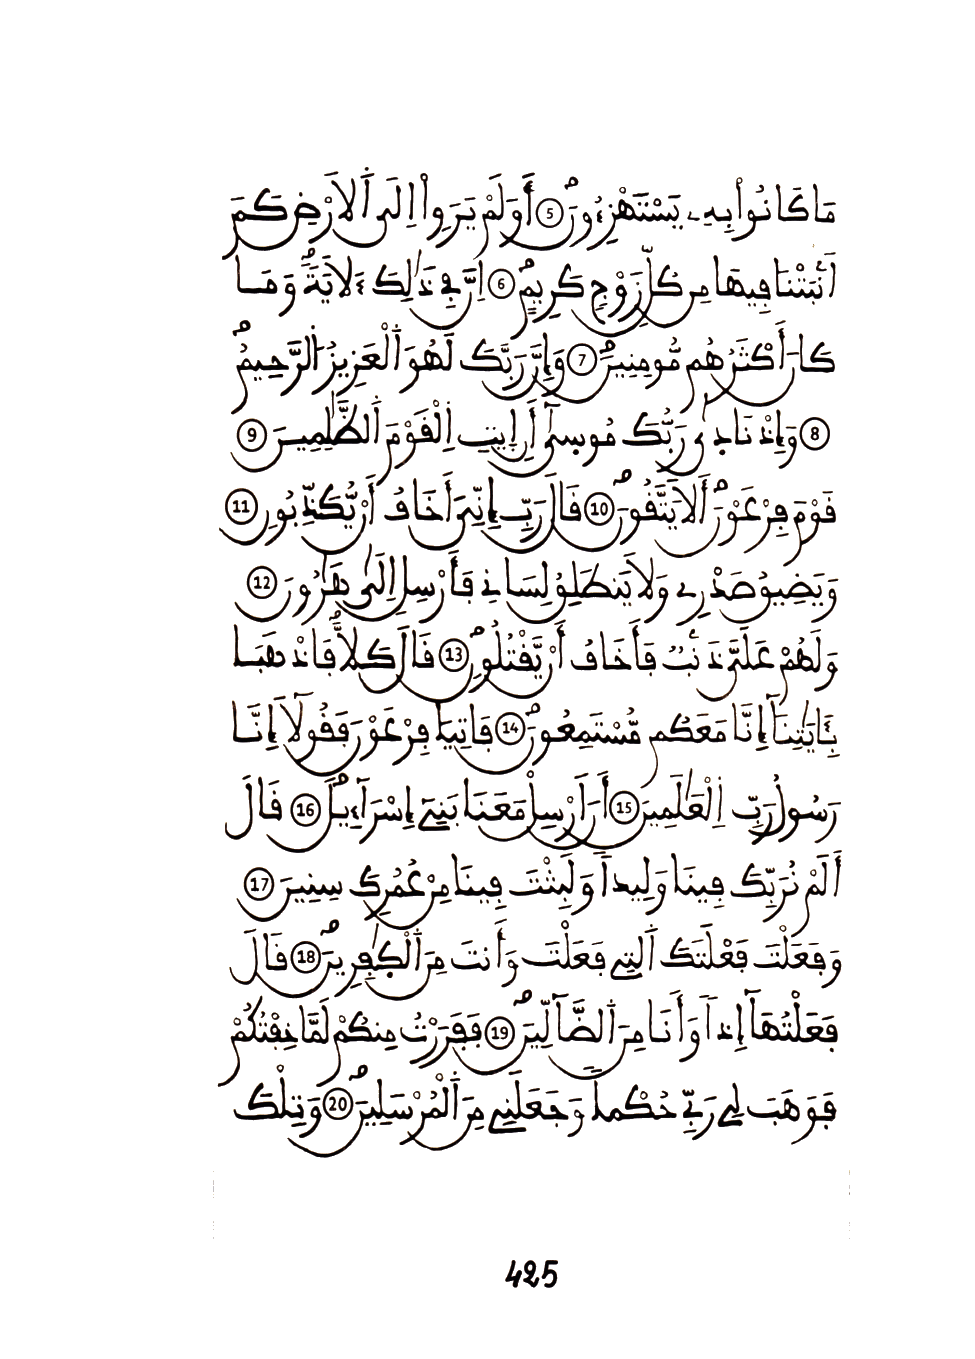 مَا كَانُواْ بِهِۦ يَسْتَهْزِءُونَ 5 أَوَلَمْ يَرَوِاْ اِلَى اَ۬لَارْضِ كَمَ
اَنۢبَتْنَا فِيهَا مِن كُلِّ زَوْجٖ كَرِيمٍ 6 اِنَّ فِے ذَٰلِكَ ءَلَايَةٗ وَمَا
كَانَ أَكْثَرُهُم مُّومِنِينَ 7 وَإِنَّ رَبَّكَ لَهُوَ اَ۬لْعَزِيزُ اُ۬لرَّحِيمُ
8 وَإِذْ نَادٜىٰ رَبُّكَ مُوسٜىٰٓ أَنِ اِيتِ اِ۬لْقَوْمَ اَ۬لظَّٰلِمِينَ 9
قَوْمَ فِرْعَوْنَ أَلَا يَتَّقُونَ 10 قَالَ رَبِّ إِنِّيَ أَخَافُ أَنْ يُّكَذِّبُونِ 11
وَيَضِيقُ صَدْرِے وَلَا يَنطَلِقُ لِسَانِے فَأَرْسِلِ اِلَىٰ هَٰرُونَ 12
وَلَهُمْ عَلَيَّ ذَنۢبٞ فَأَخَافُ أَنْ يَّقْتُلُونِ 13 قَالَ كَلَّا فَاذْهَبَا
بِـَٔايَٰتِنَآ إِنَّا مَعَكُم مُّسْتَمِعُونَ 14 فَاتِيَا فِرْعَوْنَ فَقُولَآ إِنَّا
رَسُولُ رَبِّ اِ۬لْعَٰلَمِينَ 15 أَنَ اَرْسِلْ مَعَنَا بَنِےٓ إِسْرَآءِيلَ 16 قَالَ
أَلَمْ نُرَبِّكَ فِينَا وَلِيداٗ وَلَبِثْتَ فِينَا مِنْ عُمُرِكَ سِنِينَ 17
وَفَعَلْتَ فَعْلَتَكَ اَ۬لتِے فَعَلْتَ وَأَنتَ مِنَ اَ۬لْكٰ۪فِرِينَ 18 قَالَ
فَعَلْتُهَآ إِذاٗ وَأَنَا مِنَ اَ۬لضَّآلِّينَ 19 فَفَرَرْتُ مِنكُمْ لَمَّا خِفْتُكُمْ
فَوَهَبَ لِے رَبِّے حُكْماٗ وَجَعَلَنِے مِنَ اَ۬لْمُرْسَلِينَ 20 وَتِلْكَ
425